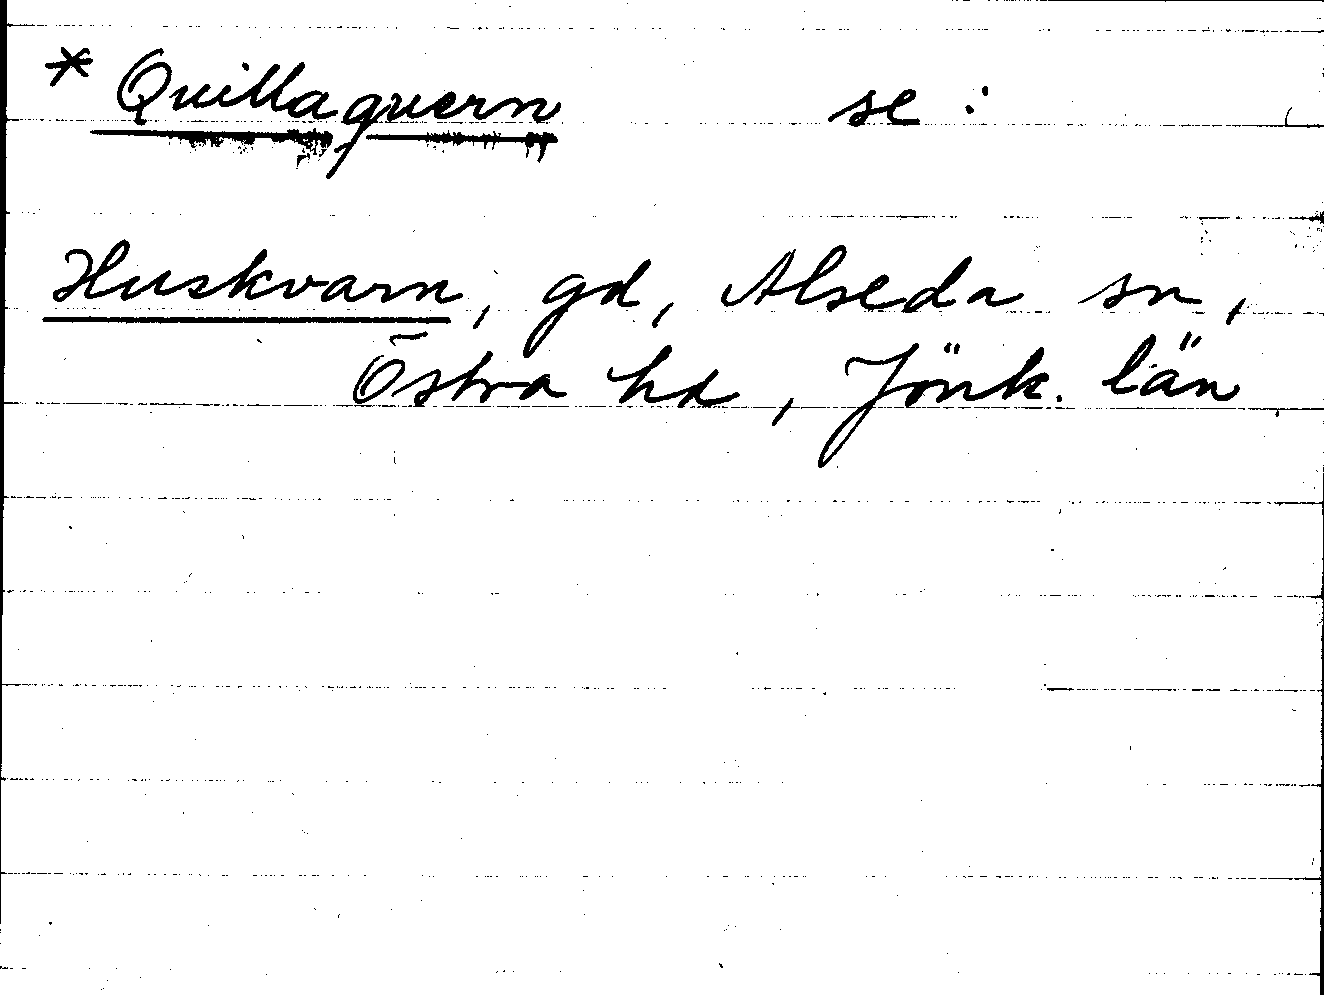 * Quillaquern se:
Huskvarn, gd, Alseda sn,
Östra hd, Jönk. län